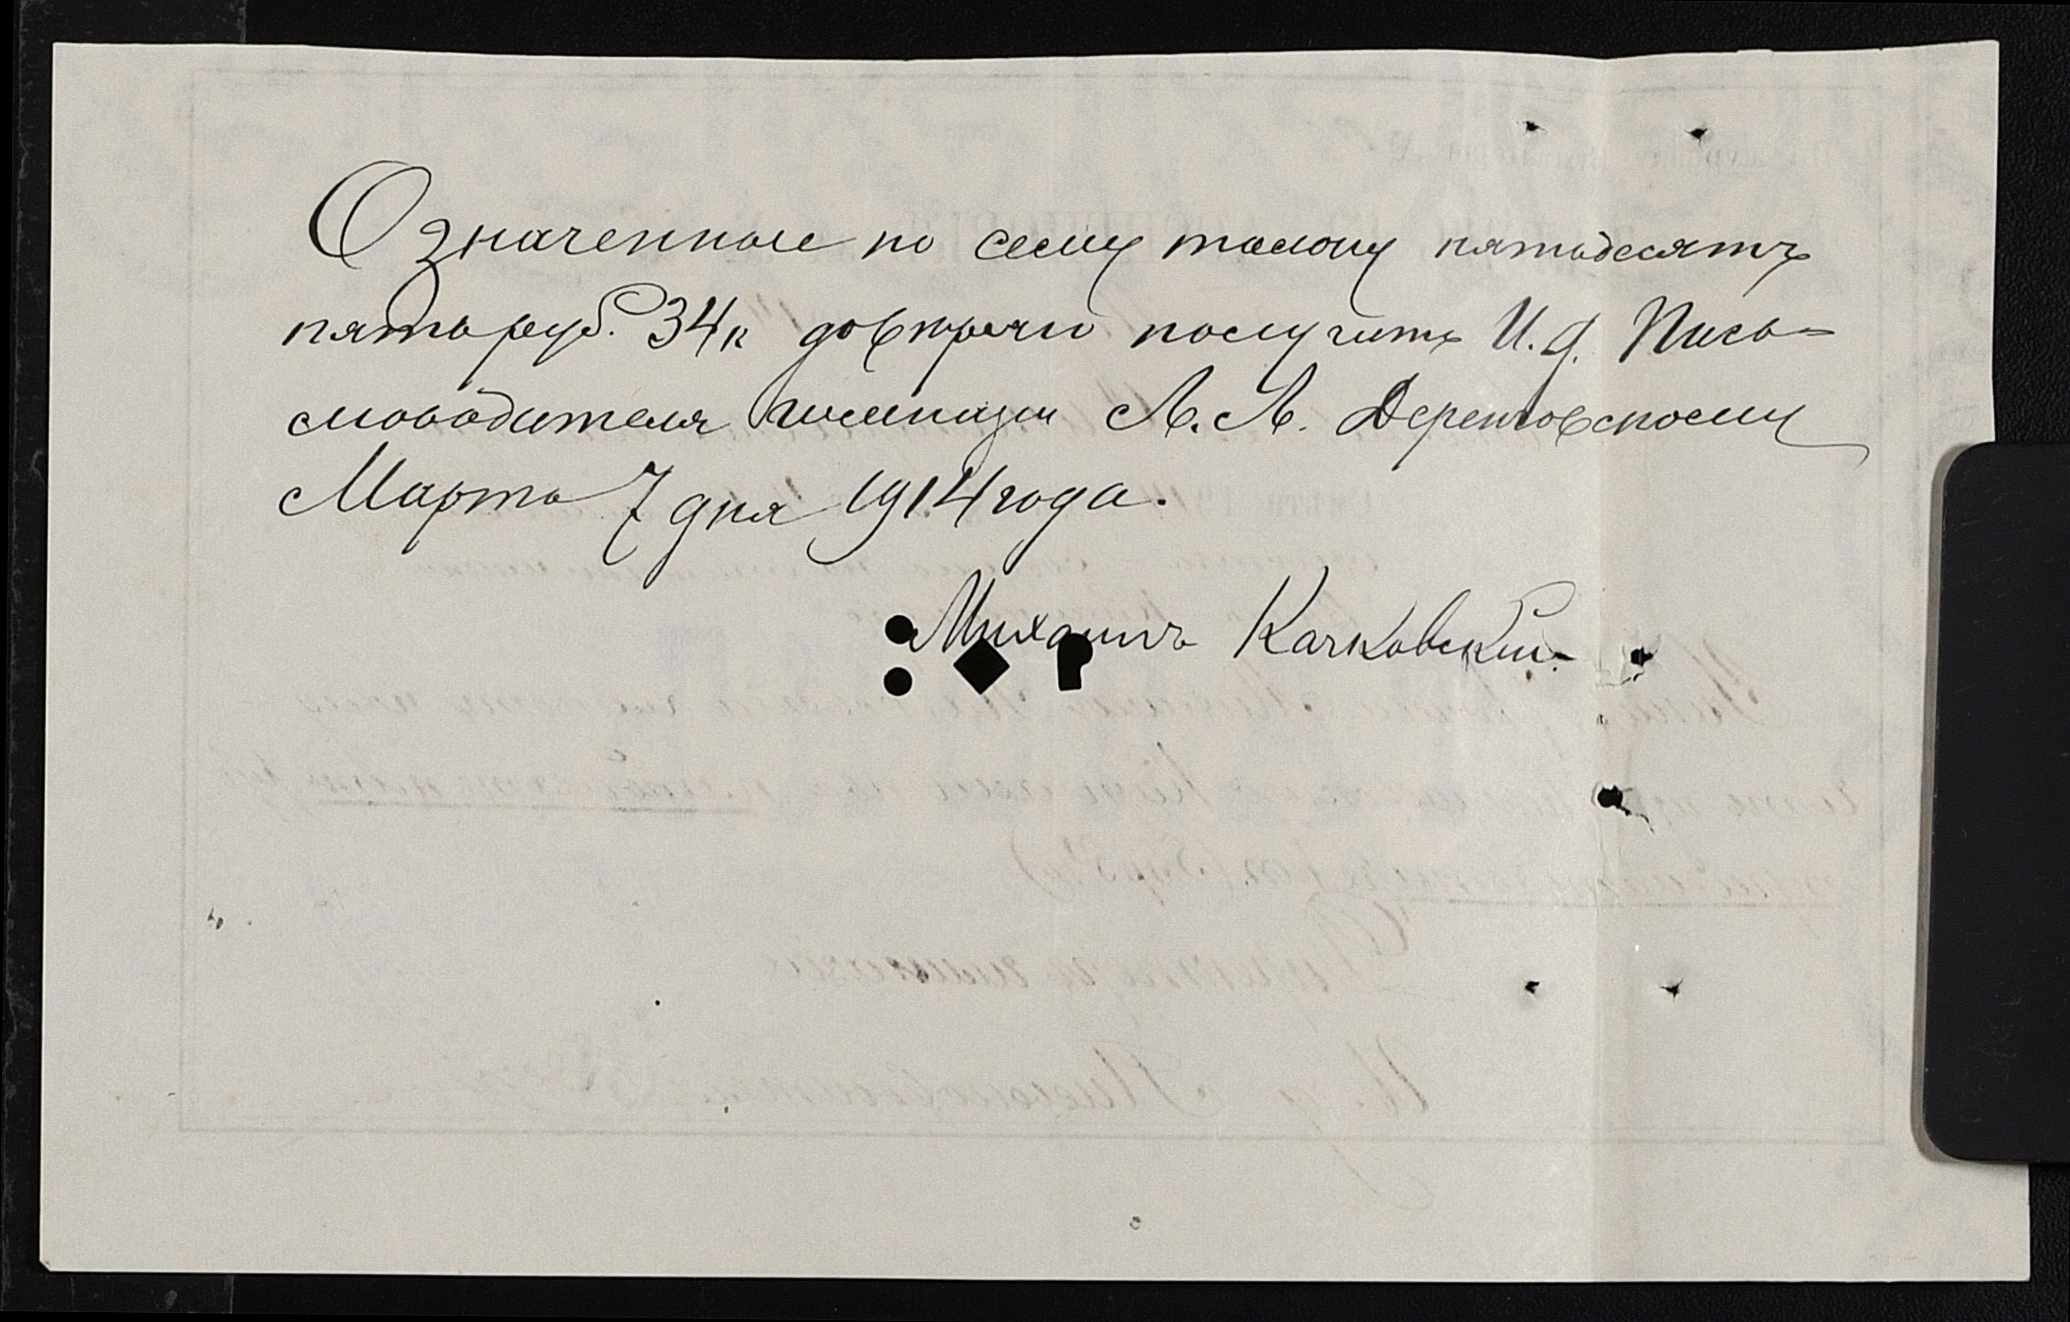 Означенные по сему талону пятьдесятъ
пять руб. 34 к довѣряю получить И. д. Пись=
моводителя гимназіи А. А. Деренговскому
Марта 7 дня 1914 года.
Михаилъ Качковскій.